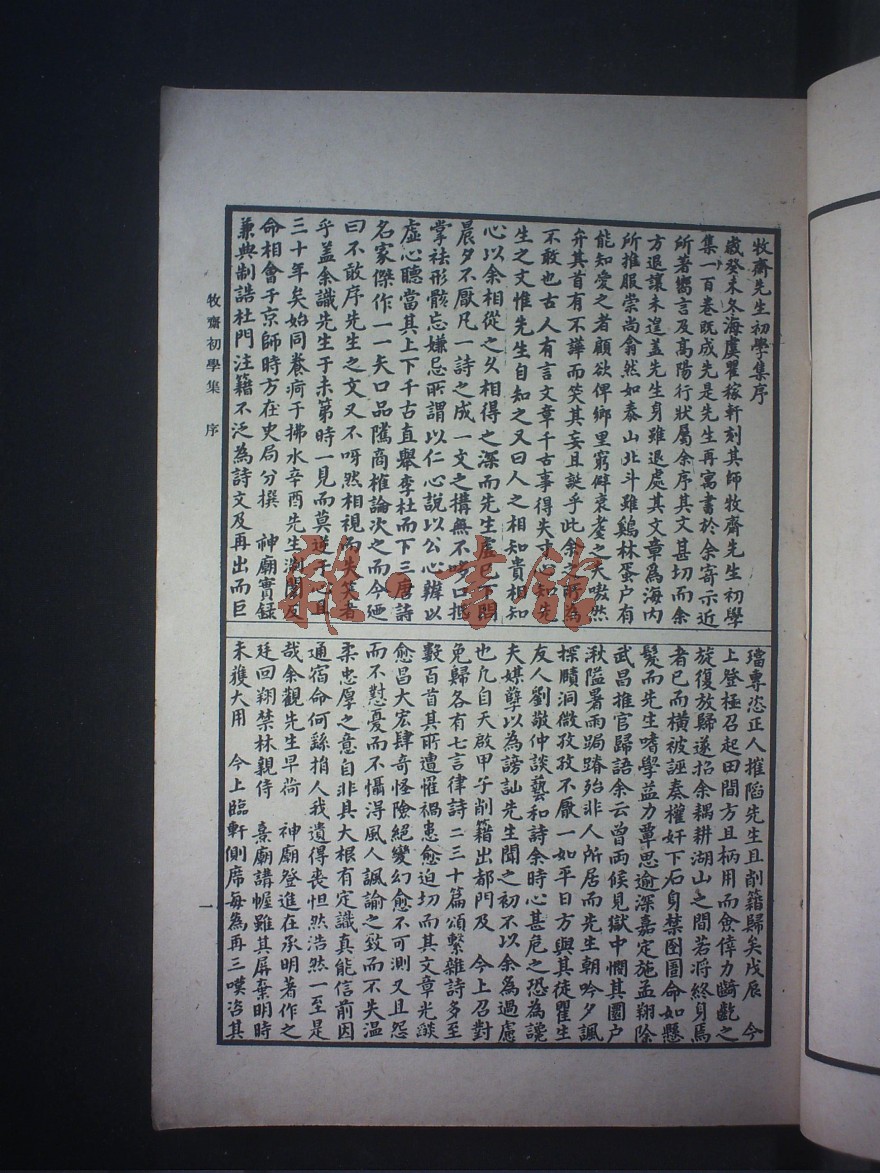 牧齋先生初學集序
歲癸未冬海虞瞿稼軒刻其師牧齋先生初學
集一百卷既成先是先生再寓書於余寄示近
所著嚮言及高陽行狀屬余序其文甚切而余
方退讓未遑蓋先生身雖退處其文章為海内
所推服崇尚翕然如泰山北斗雖鷄林蛋户有
能知愛之者顧欲俾鄉里窮僻衰耄之夫嗷然
弁其首有不譁而笑其妄且誕乎此余之所為
不敢也古人有言文章千古事得失寸心知先
生之文惟先生自知之又曰人之相知貴相知
心以余相從之久相得之深而先生虛已下問
晨夕不厭凡一詩之成一文之搆無不唦口抵
掌祛形骸忘嫌忌所謂以仁心說以公心辨以
虛心聽當其上下千古直舉李杜而下三唐詩
名家傑作一一矢口品隲商榷論次之而今廼
曰不敢序先生之文又不呀然相視而失笑者
乎盖余識先生于未第時一見而莫逆于心且
三十年矣始同養疴于拂水辛酉先生浙闈反
命相會于京師時方在史局分撰　神廟實録
兼典制誥杜門注籍不泛為詩文及再出而巨
璫專恣正人摧䧟先生且削籍歸矣戊辰　今
上登極召起田間方且柄用而僉倖力齮齕之
旋復放歸遂招余耦耕湖山之間若將終身焉
者已而橫被誣奏權奸下石身禁圄圕命如懸
髮而先生嗜學益力覃思逾深嘉定施孟翔除
武昌推官歸語余云曾兩候見獄中憫其圜户
湫隘暑雨跼蹐殆非人所居而先生朝吟夕諷
探賾洞微孜孜不厭一如平日方與其徒瞿生
友人劉敬仲談藝和詩余時心甚危之恐為讒
夫媒孽以為謗訕先生聞之初不以余為過慮
也凢自天啟甲子削籍出都門及　今上召對
免歸各有七言律詩二三十篇頌繫雜詩多至
數百首其所遭罹禍患愈迫切而其文章光燄
愈昌大宏肆奇怪險絕變幻愈不可測又且怨
而不懟憂而不懾得風人諷諭之致而不失温
柔忠厚之意自非具大根有定識真能信前因
通宿命何繇捐人我遺得喪怛然浩然一至是
哉余觀先生早荷　神廟登進在承明著作之
廷回翔禁林親侍　熹廟講幄雖其屏棄明時
未獲大用　今上臨軒側席每為再三嘆咨其
牧齋初學集　序
一
雜·書館